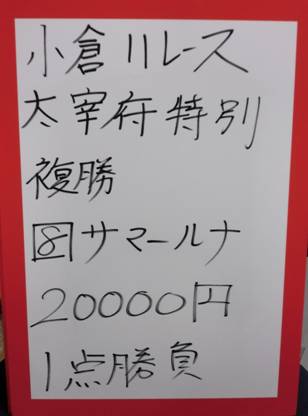 小倉11レース
太宰府特別
複勝
8サマールナ
20000円
1点勝負